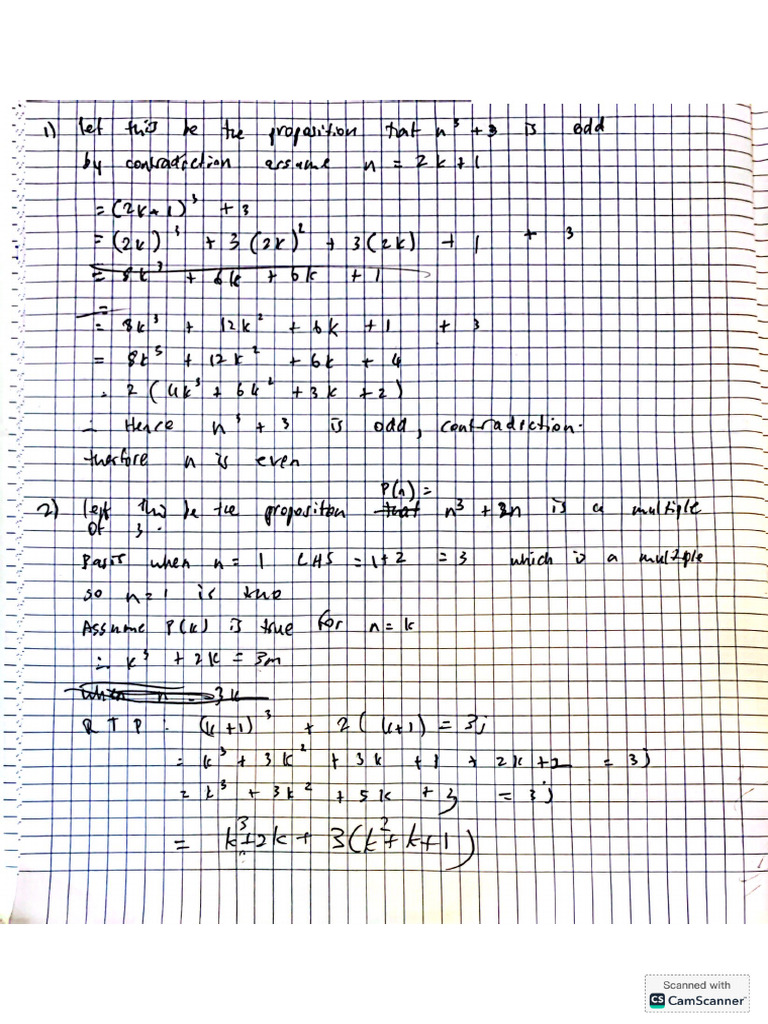 1) let this be the proposition that n³ + 3 is odd
by contradiction assume n = 2k+1
= (2k+1)³ + 3
= (2k)³ + 3(2k)² + 3(2k) + 1 + 3
= 8k³ + 6k + 6k + 1
=
= 8k³ + 12k² + 6k + 1 + 3
= 8k³ + 12k² + 6k + 4
∴ 2(4k³ + 6k² + 3k + 2)
∴ Hence n³ + 3 is odd, contradiction.
therefore n is even
P(n) =
2) let this be the proposition that n³ + 2n is a multiple
of 3.
Basis when n = 1 LHS = 1+2 = 3 which is a multiple
so n=1 is true
Assume P(k) is true for n = k
∴ k³ + 2k = 3m
when n = 3k
RTP : (k+1)³ + 2(k+1) = 3j
= k³ + 3k² + 3k + 1 + 2k+2 = 3j
= k³ + 3k² + 5k + 3 = 3j
= k³+2k + 3(k²+k+1)
Scanned with
CS CamScanner